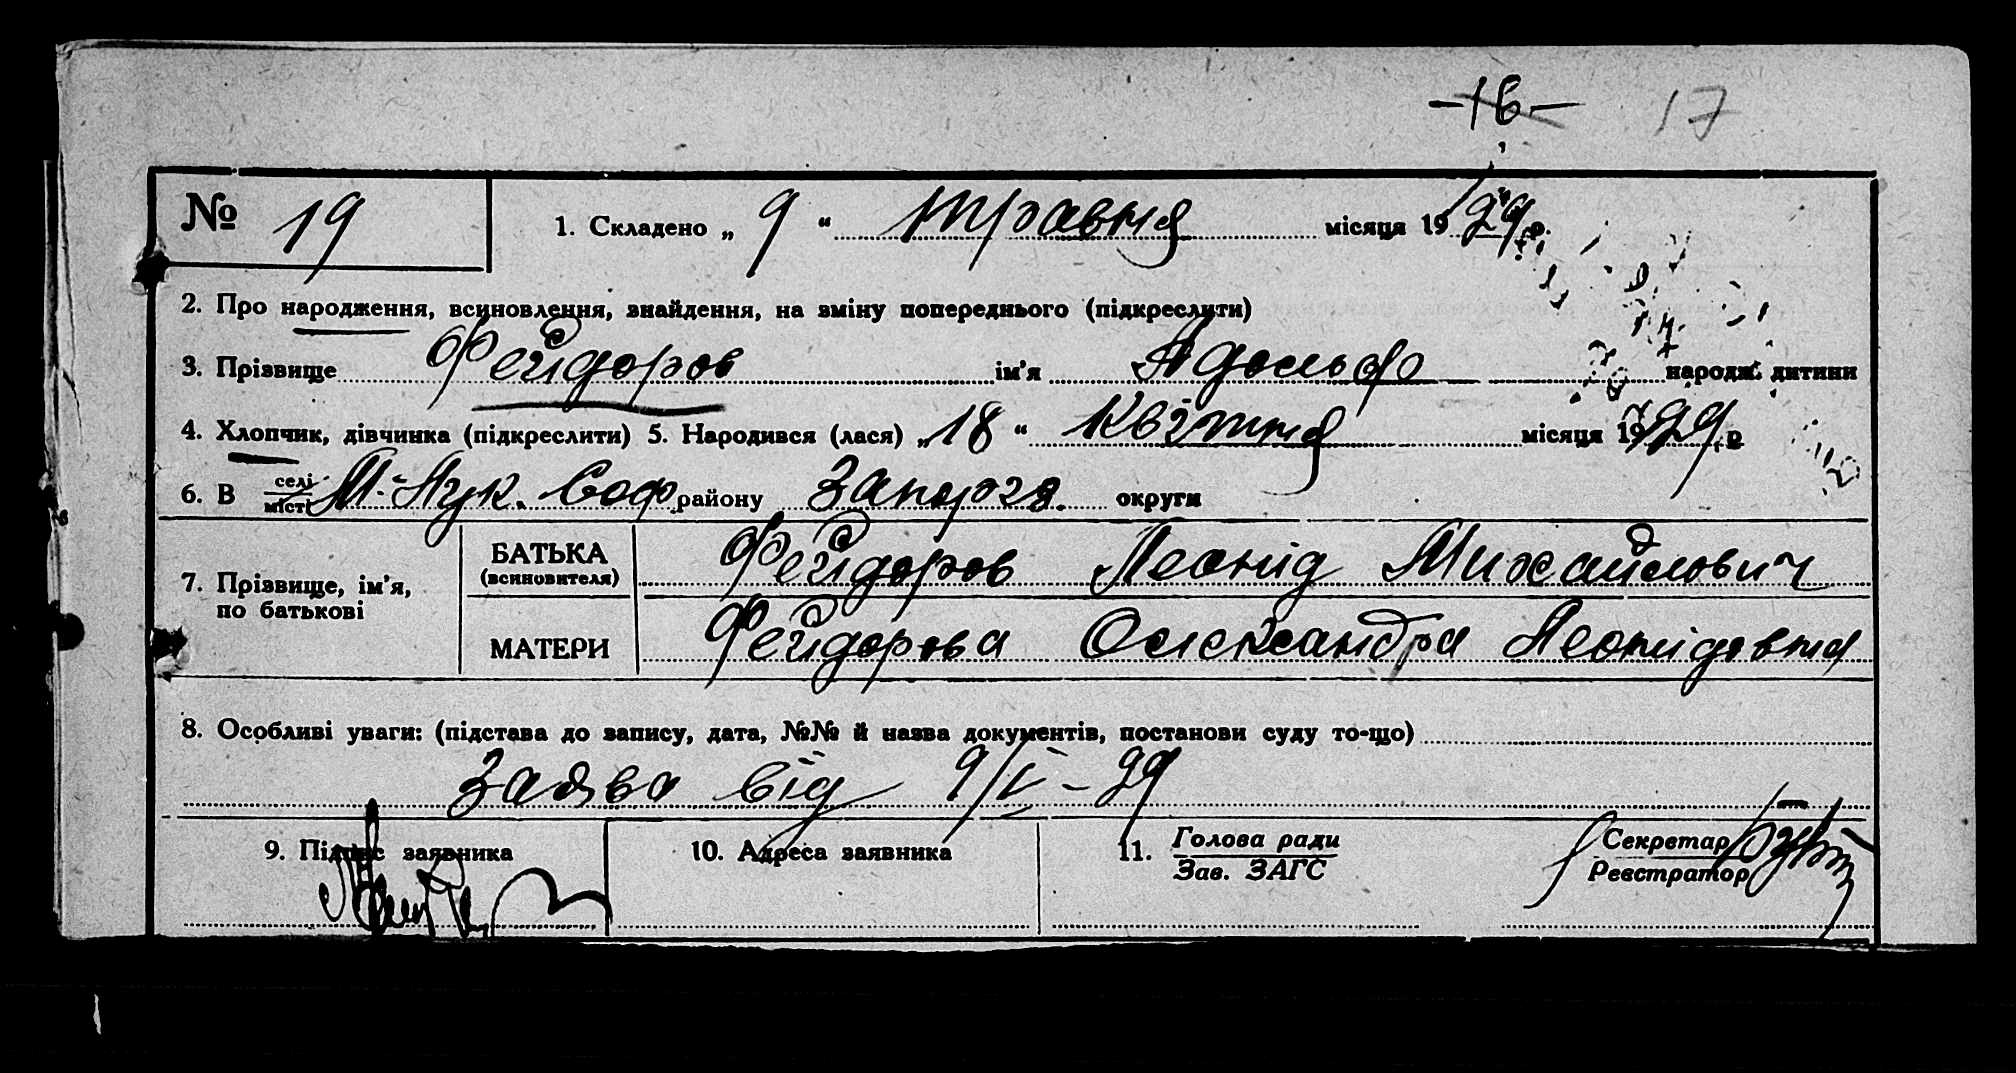 -16- 17
№ 19 1. Складено „ 9 “ травня місяця 1929 р.
2. Про народження, всиновлення, знайдення, на зміну попереднього (підкреслити)
3. Прізвище Фейдоров ім’я Адольф народж. дитини
4. Хлопчик, дівчинка (підкреслити) 5. Народився (лася) „ 18 “ Квітня місяця 1929 р
6. В селі місті М.-Лук. Соф. району Запорзя. округи
7. Прізвище, ім’я, по батькові
БАТЬКА (всиновителя) Фейдоров Леонід Михайлович
МАТЕРИ Фейдорова Олександра Леонідовна
8. Особливі уваги: (підстава до запису, дата, №№ й назва документів, постанови суду то-що)
Заява від 9/V – 29
9. Підпис заявника 10. Адреса заявника 11. Голова ради Секретар
Зав. ЗАГС Реєстратор